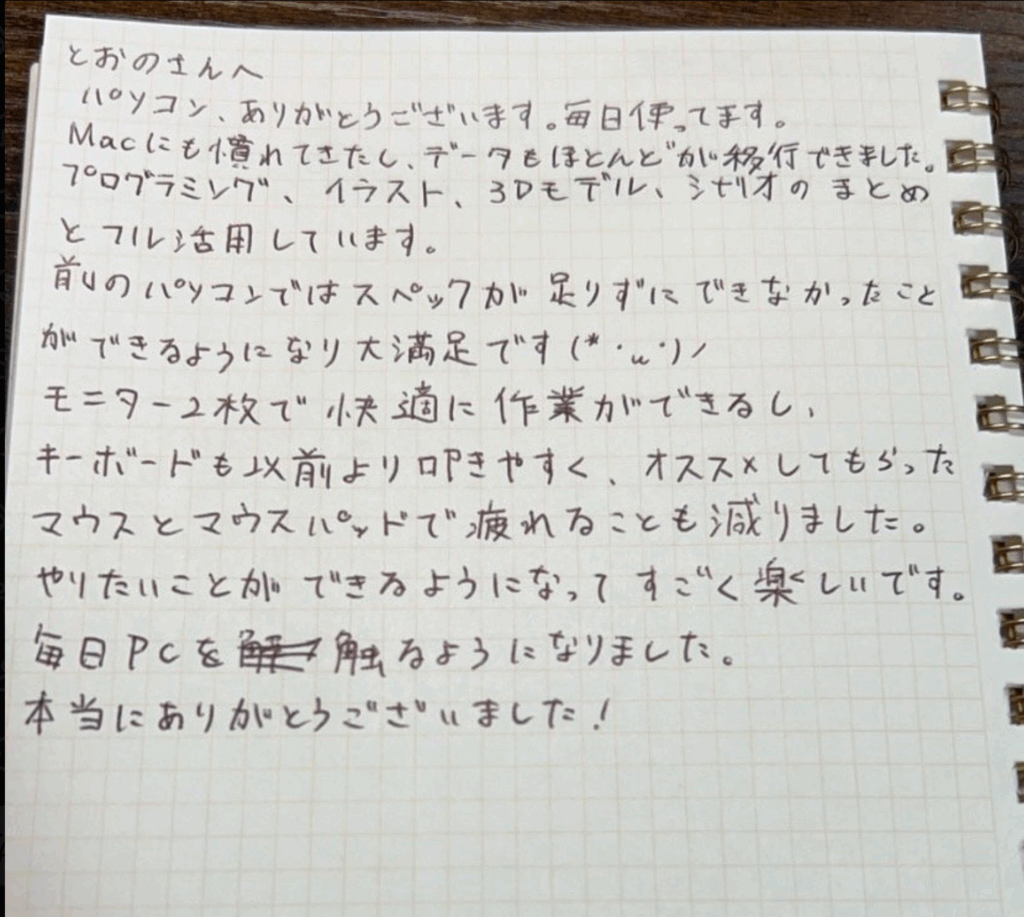 とおのさんへ
パソコン、ありがとうございます。毎日使ってます。
Macにも慣れてきたし、データもほとんどが移行できました。
プログラミング、イラスト、3Dモデル、シナリオのまとめ
とフル活用しています。
前のパソコンではスペックが足りずにできなかったこと
ができるようになり大満足です(*･ω･)ノ
モニター2枚で快適に作業ができるし、
キーボードも以前より叩きやすく、オススメしてもらった
マウスとマウスパッドで疲れることも減りました。
やりたいことができるようになってすごく楽しいです。
毎日PCを触るようになりました。
本当にありがとうございました!